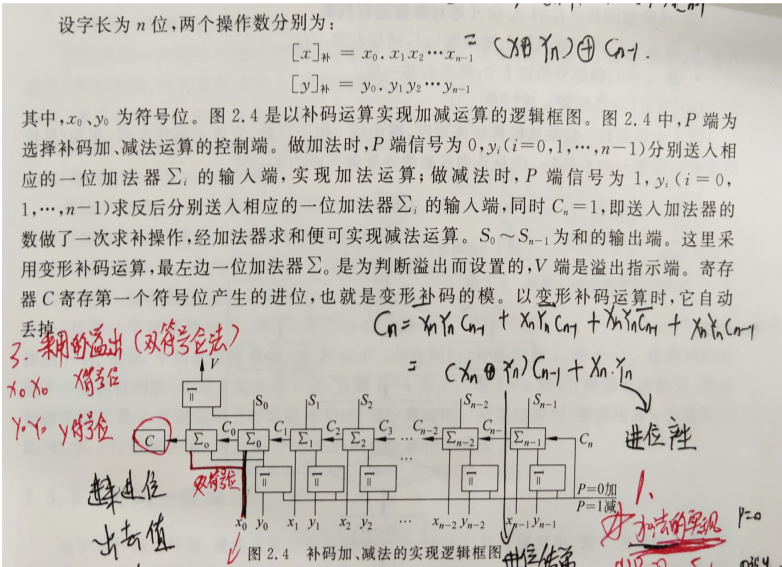 设字长为 n 位,两个操作数分别为:
[x]补 = x₀.x₁x₂⋯xₙ₋₁
= (Xₙ⊕Yₙ)⊕Cₙ₋₁.
[y]补 = y₀.y₁y₂⋯yₙ₋₁
其中,x₀、y₀ 为符号位。图 2.4 是以补码运算实现加减运算的逻辑框图。图 2.4 中,P 端为
选择补码加、减法运算的控制端。做加法时,P 端信号为 0,yᵢ(i=0,1,⋯,n−1)分别送入相
应的一位加法器 Σᵢ 的输入端,实现加法运算;做减法时,P 端信号为 1,yᵢ(i=0,
1,⋯,n−1)求反后分别送入相应的一位加法器Σᵢ 的输入端,同时 Cₙ=1,即送入加法器的
数做了一次求补操作,经加法器求和便可实现减法运算。S₀~Sₙ₋₁ 为和的输出端。这里采
用变形补码运算,最左边一位加法器Σ₀ 是为判断溢出而设置的,V 端是溢出指示端。寄存
器 C 寄存第一个符号位产生的进位,也就是变形补码的模。以变形补码运算时,它自动
丢掉
= (Xₙ⊕Yₙ)Cₙ₋₁ + Xₙ·Yₙ
3. 采用的溢出(双符号位法)
X₀X₀ X符号位
Y₀Y₀ y符号位
V
S₀ S₁ S₂ Sₙ₋₂ Sₙ₋₁
C Σ₀ C₀ Σ₀ C₁ Σ₁ C₂ Σ₂ C₃ ⋯ Cₙ₋₂ Σₙ₋₂ Σₙ₋₁ Cₙ
=1 =1 =1 =1 =1 =1
双符号位
进位产生
P=0加
P=1减
x₀ y₀ x₁ y₁ x₂ y₂ ⋯ xₙ₋₂ yₙ₋₂ xₙ₋₁ yₙ₋₁
图 2.4 补码加、减法的实现逻辑框图
1.
加法的实现 P=0